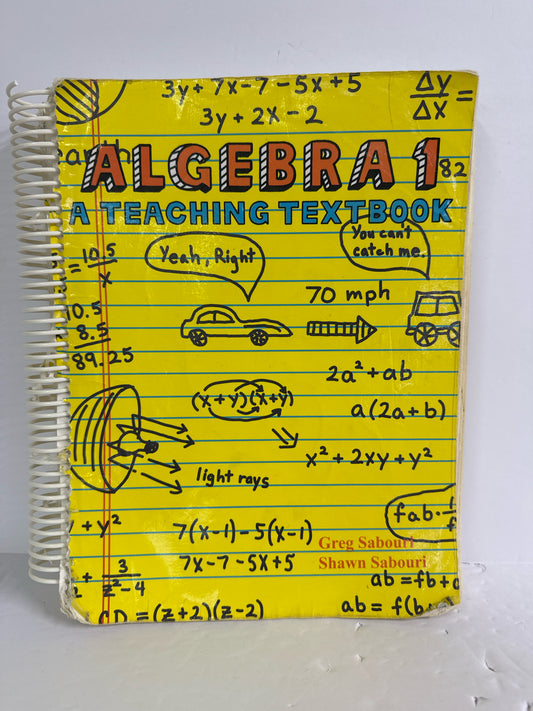 3y + 7x - 7 - 5x + 5
Δy
Δx =
3y + 2x - 2
ALGEBRA 1
82
A TEACHING TEXTBOOK
Yeah, Right
You can't
catch me.
= 10.5
x
70 mph
10.5
8.5
89.25
2a² + ab
(x + y)(x + y)
a(2a + b)
x² + 2xy + y²
light rays
fab · 1
f
+ y²
7(x - 1) - 5(x - 1)
Greg Sabouri
7x - 7 - 5x + 5
Shawn Sabouri
+ 3
z² - 4
ab = fb + a
CD = (z + 2)(z - 2)
ab = f(b +